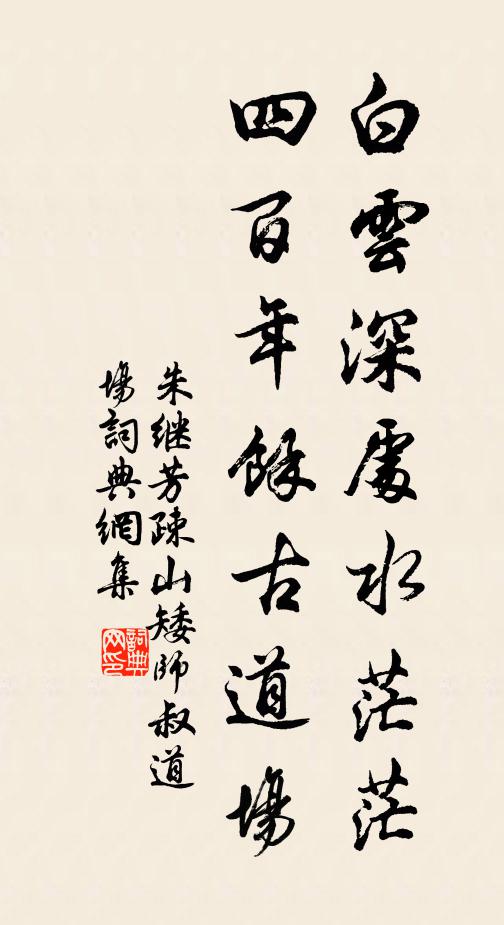 白雲深處水茫茫
四百年餘古道場
朱继芳疎山矮師叔道
場詞典網集
詞典网印